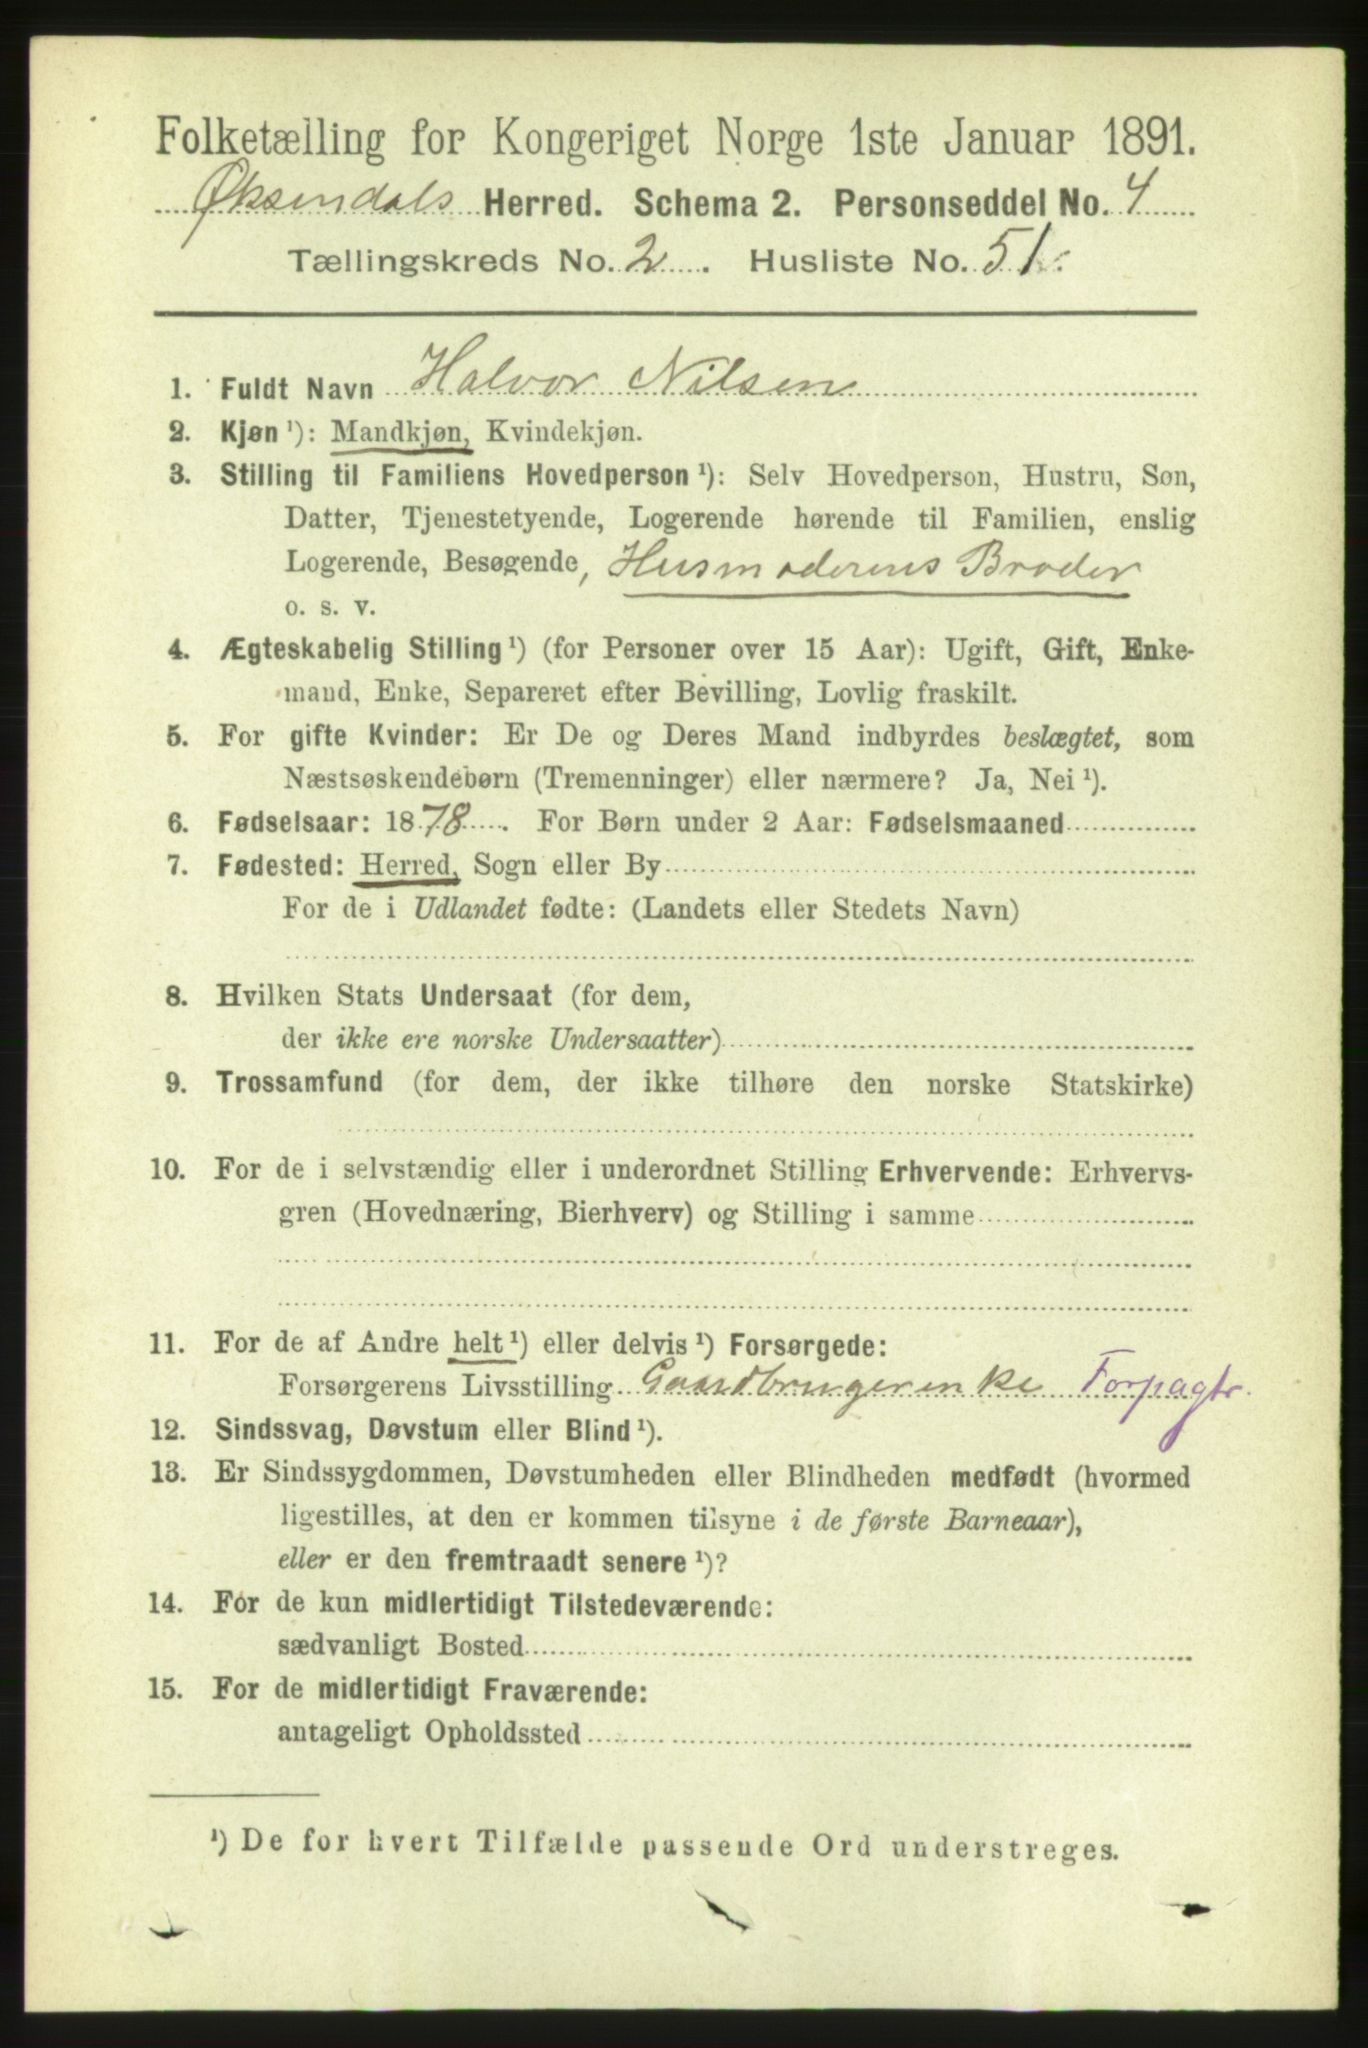 Folketælling for Kongeriget Norge 1ste Januar 1891.
Øksendals Herred. Schema 2. Personseddel No. 4
Tællingskreds No. 2. Husliste No. 51.
1. Fuldt Navn Halvor Nilsen
2. Kjøn ¹): Mandkjøn, Kvindekjøn.
3. Stilling til Familiens Hovedperson ¹): Selv Hovedperson, Hustru, Søn,
Datter, Tjenestetyende, Logerende hørende til Familien, enslig
Logerende, Besøgende, Husmoderens Broder
o. s. v.
4. Ægteskabelig Stilling ¹) (for Personer over 15 Aar): Ugift, Gift, Enke-
mand, Enke, Separeret efter Bevilling, Lovlig fraskilt.
5. For gifte Kvinder: Er De og Deres Mand indbyrdes beslægtet, som
Næstsøskendebørn (Tremenninger) eller nærmere? Ja, Nei ¹).
6. Fødselsaar: 1878. For Børn under 2 Aar: Fødselsmaaned
7. Fødested: Herred, Sogn eller By
For de i Udlandet fødte: (Landets eller Stedets Navn)
8. Hvilken Stats Undersaat (for dem,
der ikke ere norske Undersaatter)
9. Trossamfund (for dem, der ikke tilhøre den norske Statskirke)
10. For de i selvstændig eller i underordnet Stilling Erhvervende: Erhvervs-
gren (Hovednæring, Bierhverv) og Stilling i samme
11. For de af Andre helt ¹) eller delvis ¹) Forsørgede:
Forsørgerens Livsstilling Gaardbrugerenke Forpagtr.
12. Sindssvag, Døvstum eller Blind ¹).
13. Er Sindssygdommen, Døvstumheden eller Blindheden medfødt (hvormed
ligestilles, at den er kommen tilsyne i de første Barneaar),
eller er den fremtraadt senere ¹)?
14. For de kun midlertidigt Tilstedeværende:
sædvanligt Bosted
15. For de midlertidigt Fraværende:
antageligt Opholdssted
¹) De for hvert Tilfælde passende Ord understreges.